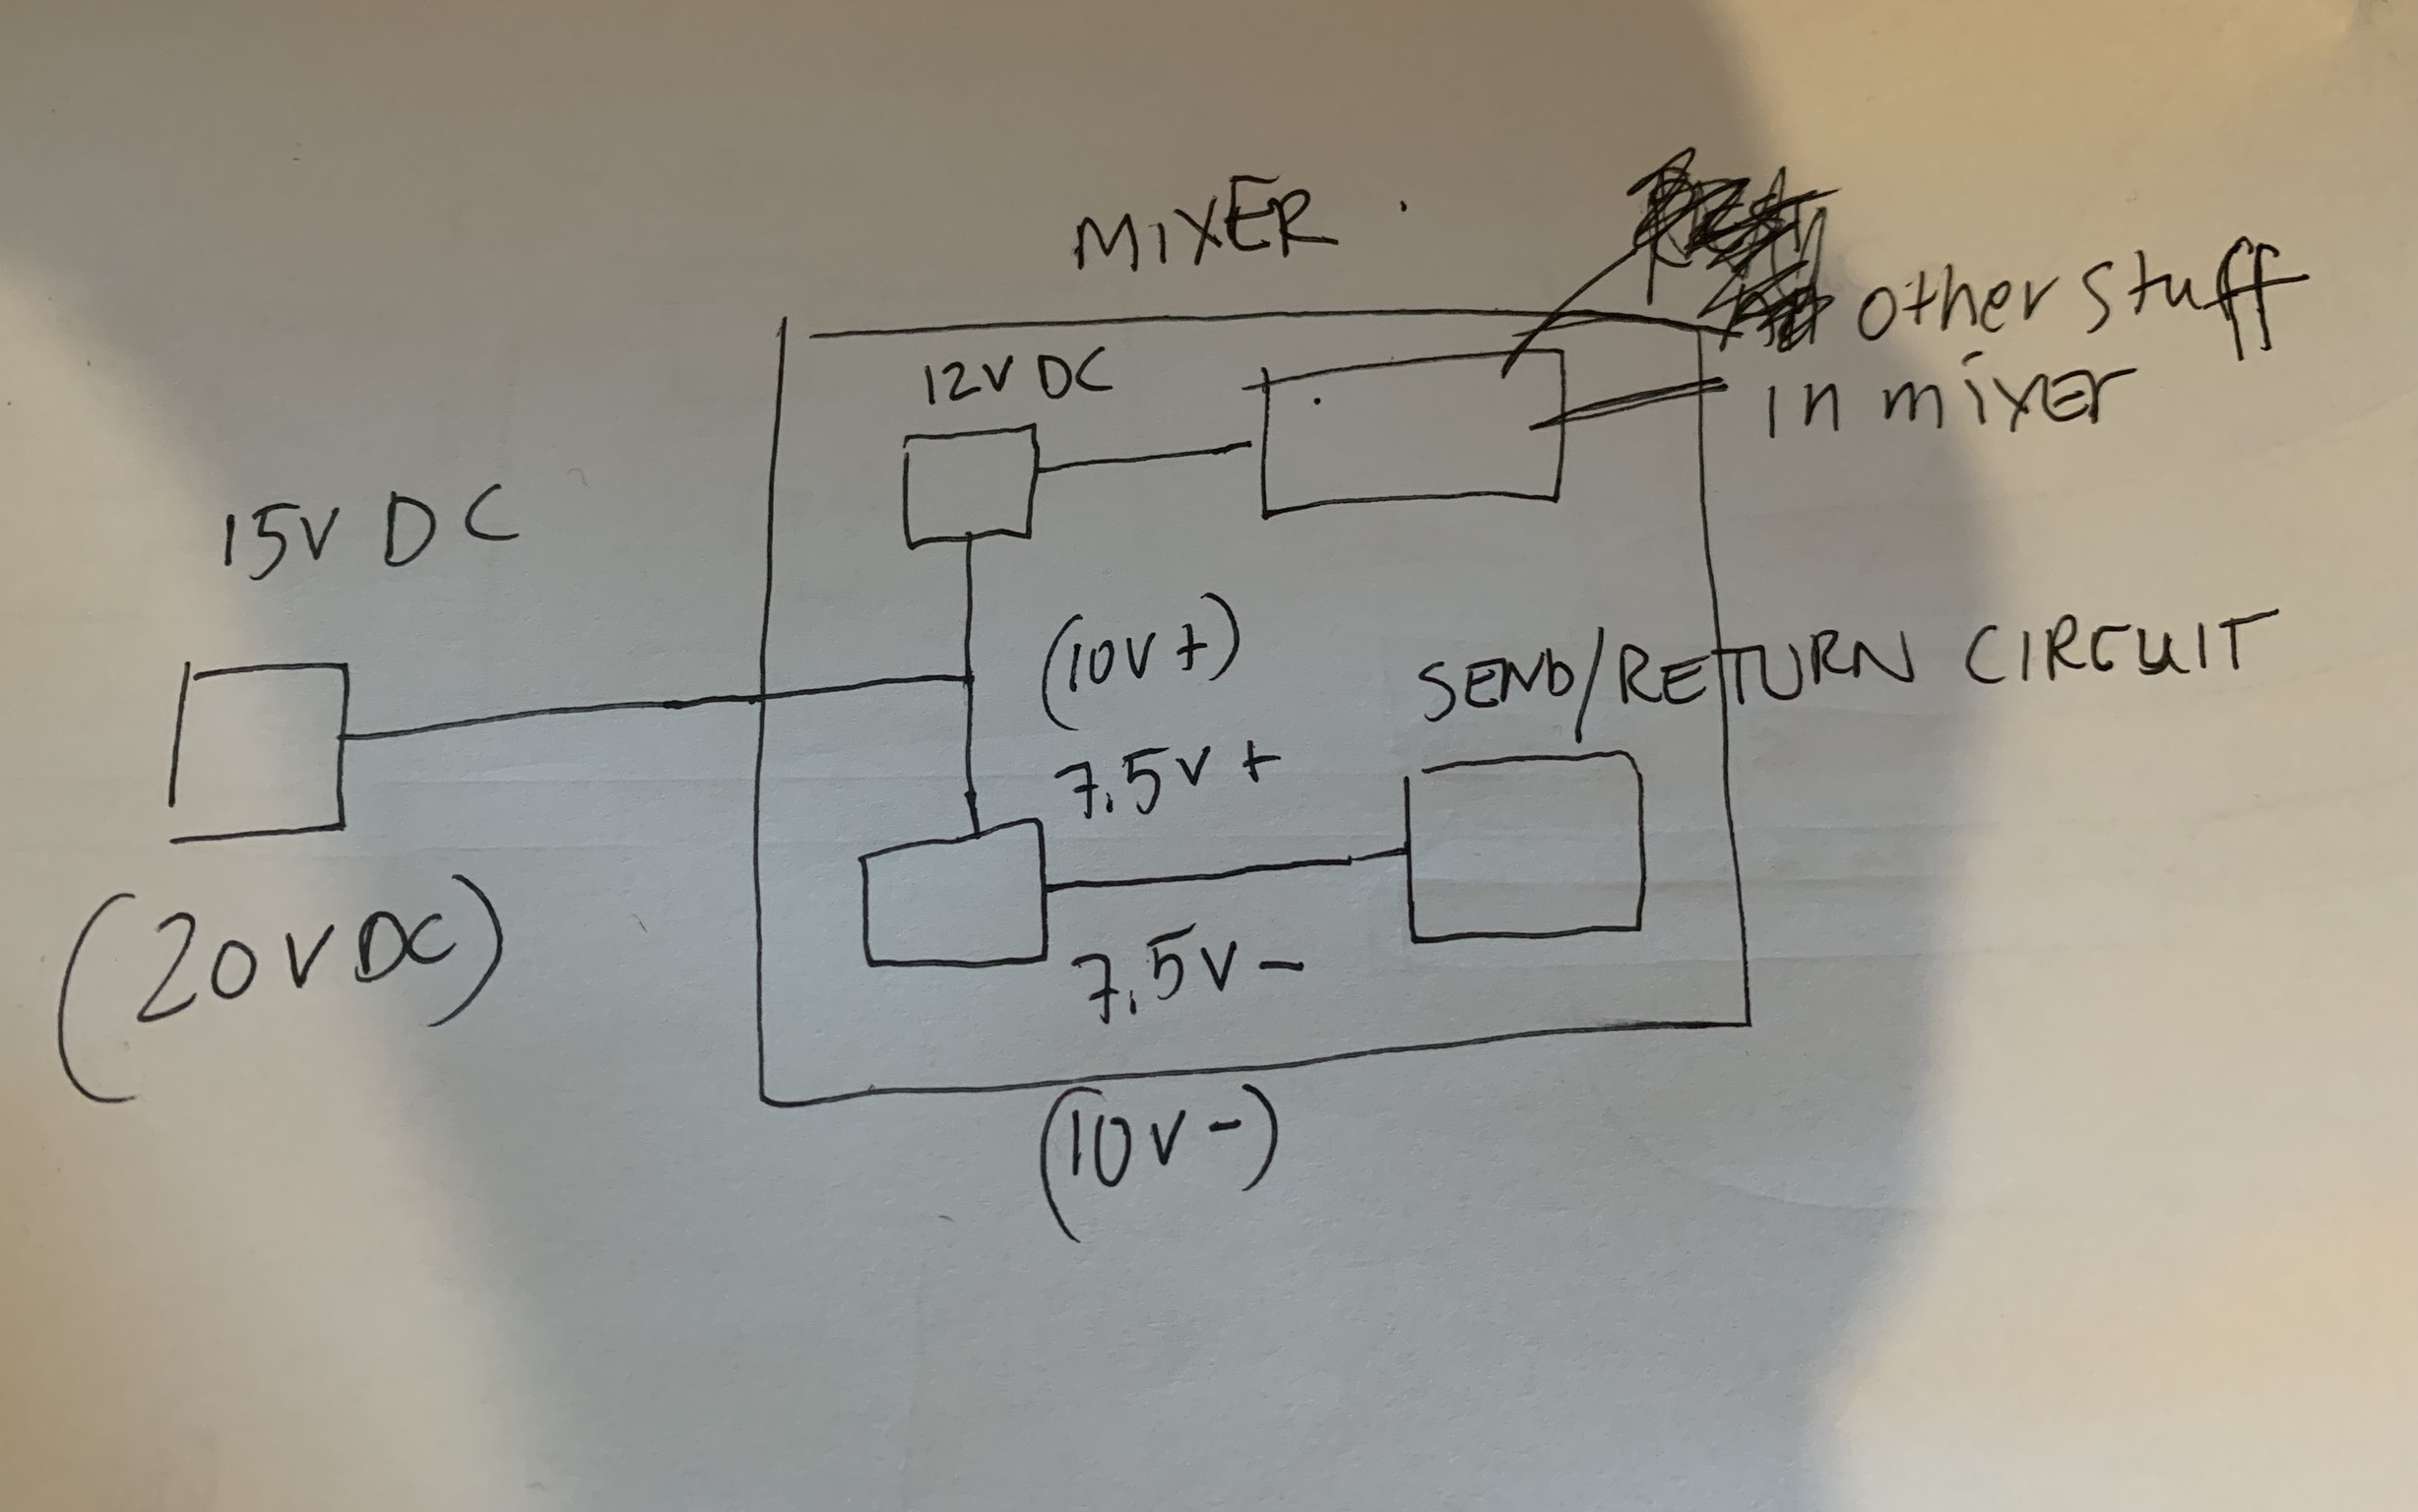 MIXER
other stuff
in mixer
12V DC
15V DC
(10V+)
SEND/RETURN CIRCUIT
7.5V+
(20V DC)
7.5V-
(10V-)